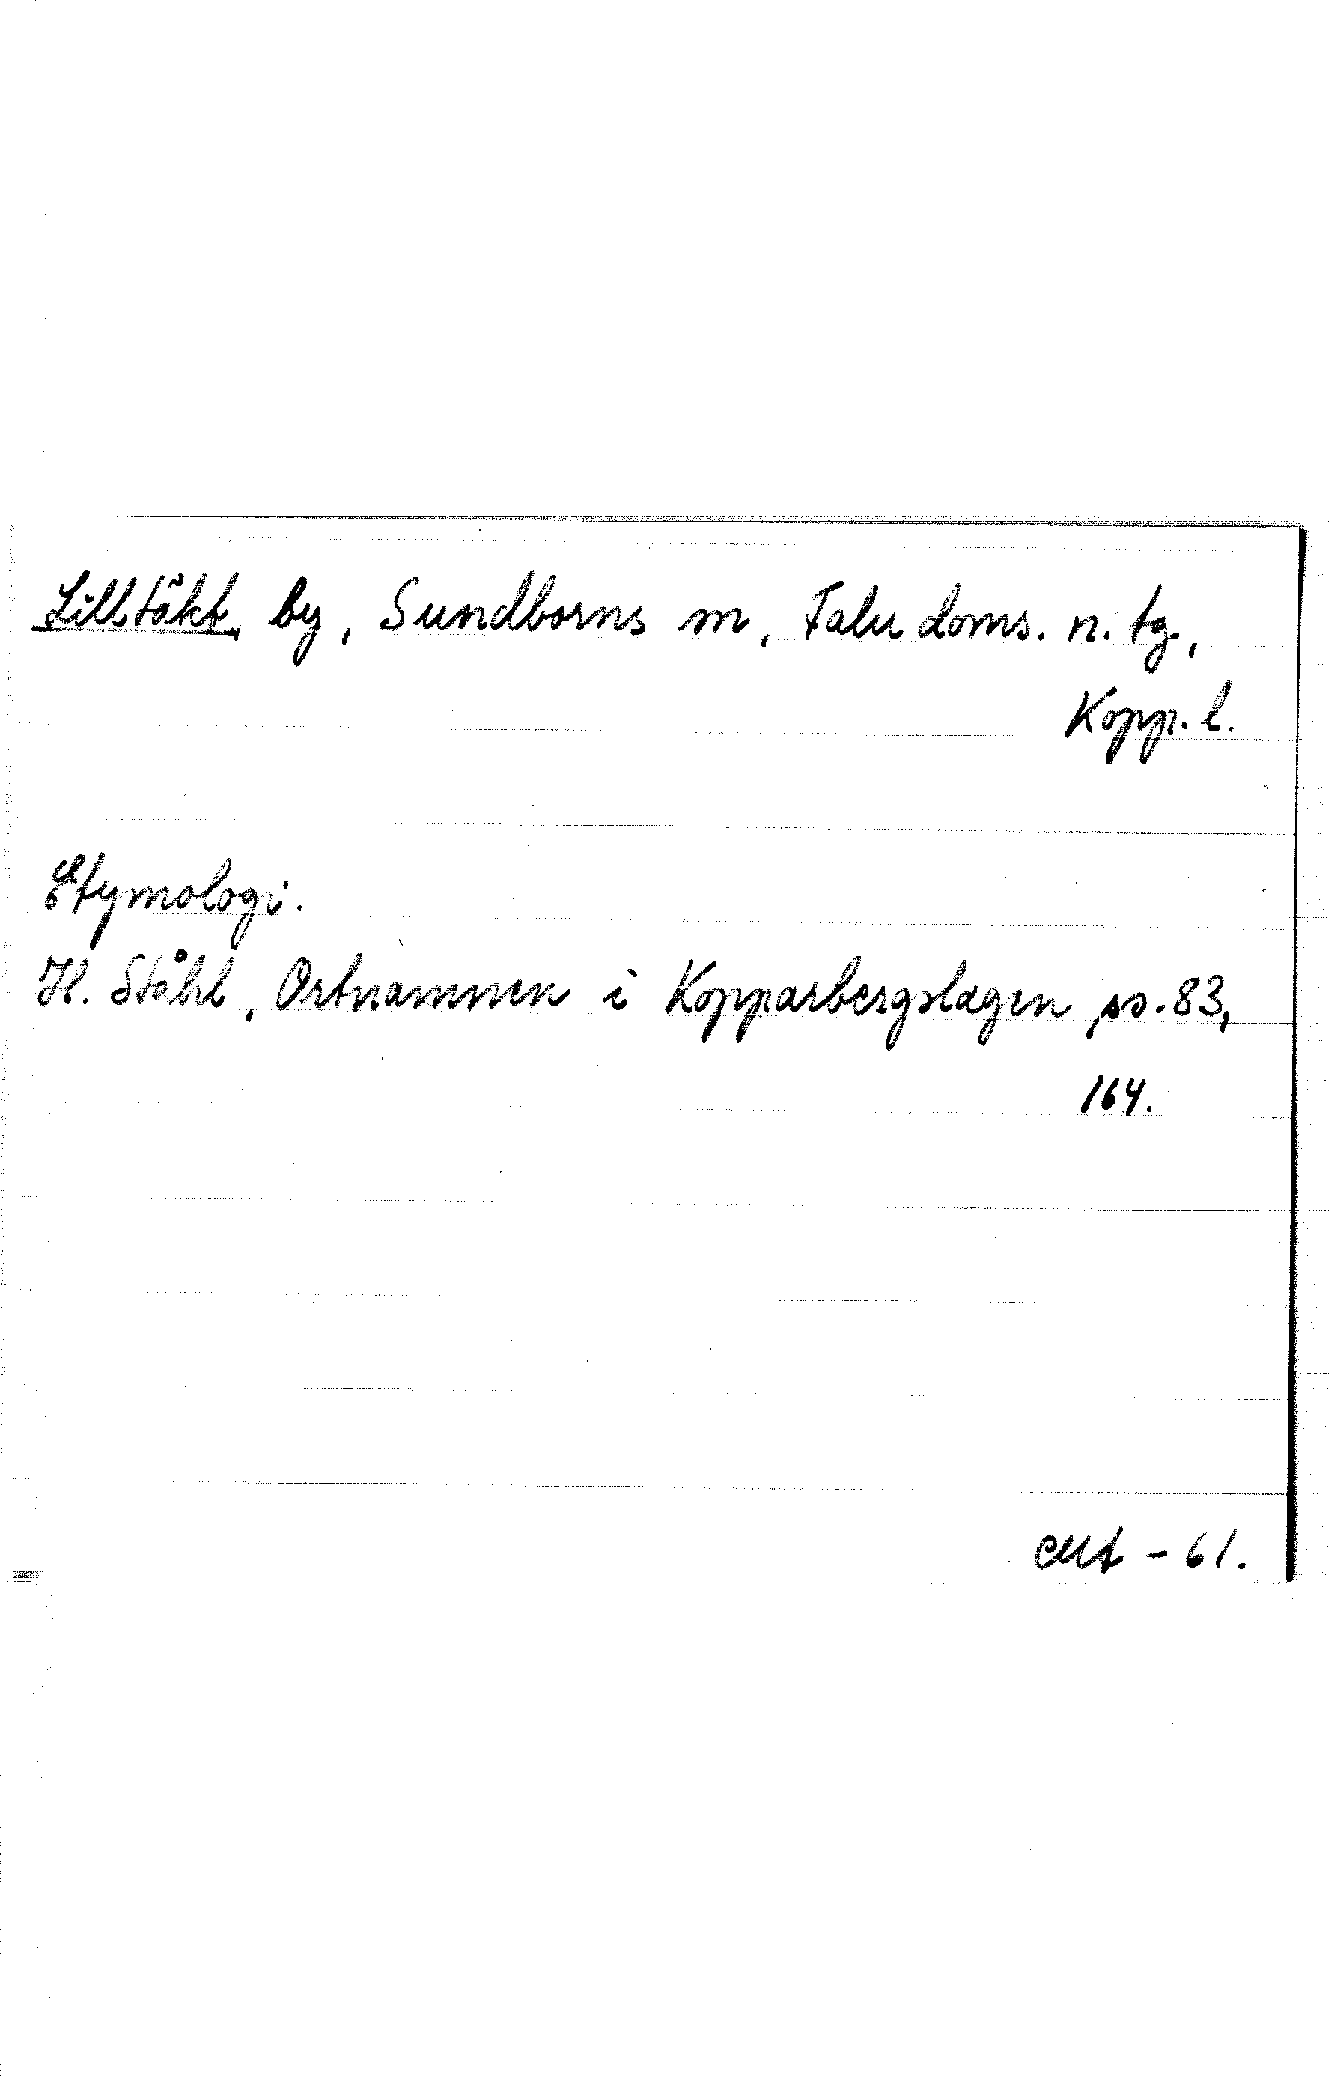 Lilltäkt, by, Sundborns sn, Falu doms. n. tg.,
Kopp. l.
Etymologi.
H. Ståhl, Ortnamnen i Kopparbergslagen, ss. 83,
164.
- 61.